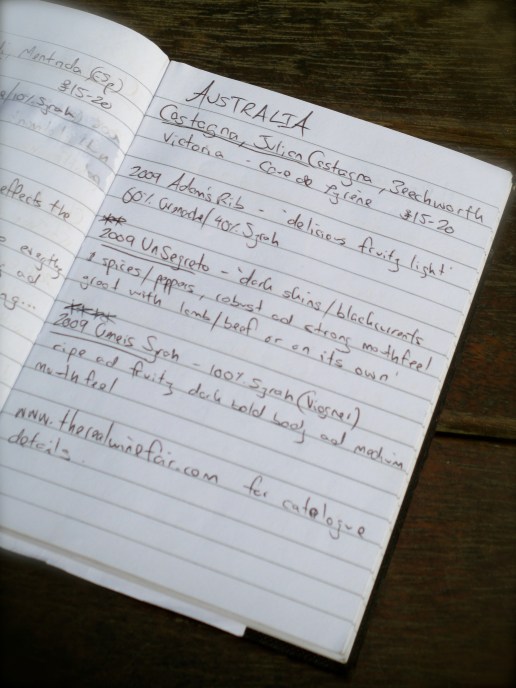 Montrida (Esp)
£15-20
/10% Syrah)
effects the
exactly
ad
ag...
AUSTRALIA
Castagna, Julian Castagna, Beechworth
Victoria - Cave de Pyrène £15-20
2009 Adam's Rib - 'delicious fruity light'
60% /40% Syrah
**
2009 UnSegreto - 'dark skins/blackcurrents
& spices/peppers, robust ad strong mouthfeel
great with lamb/beef or on its own'
****
2009 Syrah - 100% Syrah (Viognier)
ripe ad fruity dark bold body ad medium
mouthfeel
www.therealwinefair.com for catalogue
details.